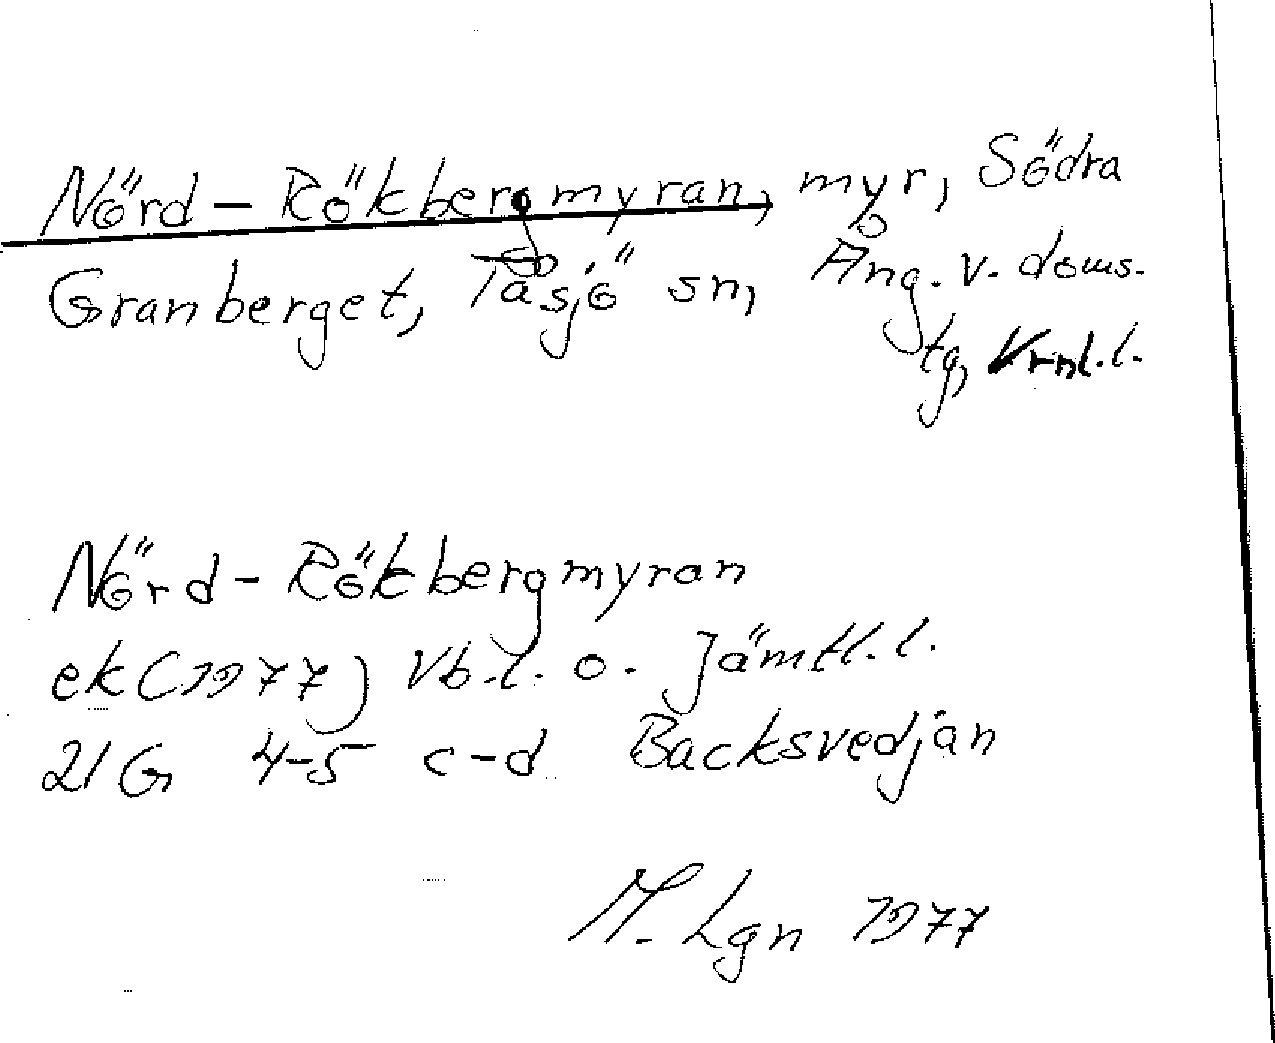 Nörd-Rökbergmyran, myr, Södra
Granberget, Tåsjö sn, Ång. v. doms.
tg, Vrnl.l.
Nörd-Rökbergmyran
ek (1977) Vb.l. o. Jämtl.l.
21G 4-5 c-d Backsvedjan
M. Lgn 1977